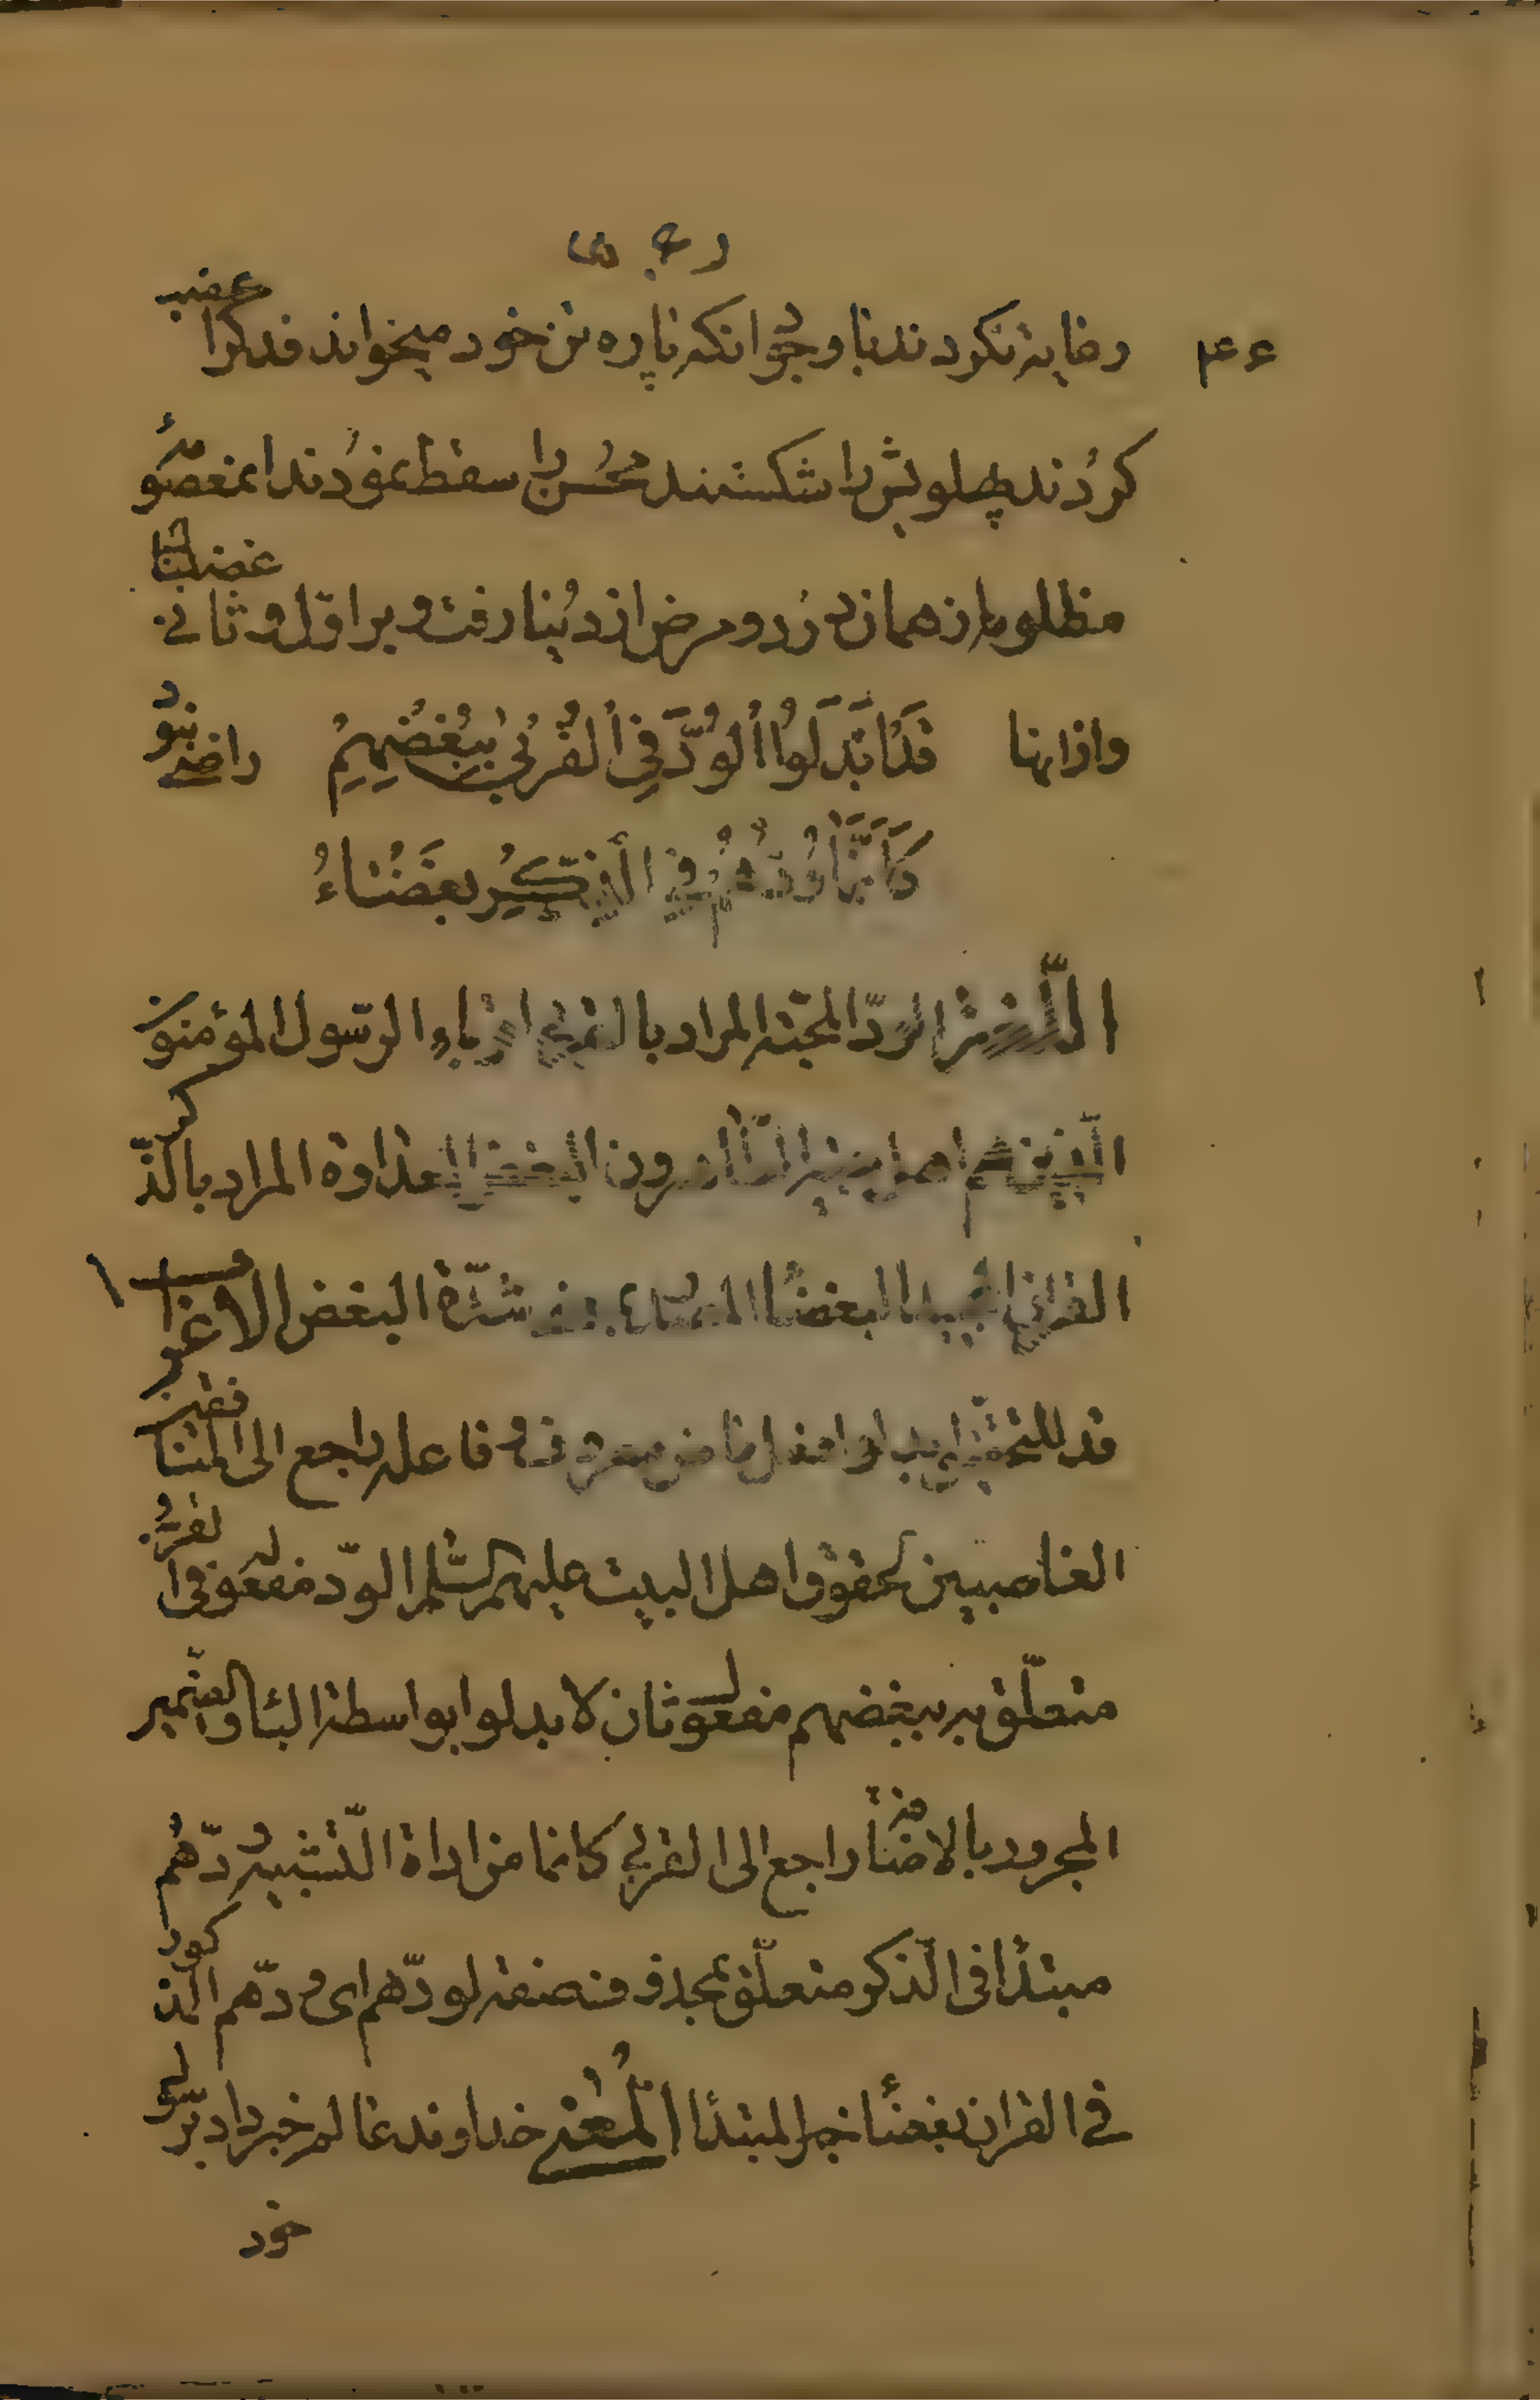 رعایة نکردند با وجود انکه پاره تن خود میخواند فدک را غصب
کردند پهلویش را شکستند محسن را سقط نمودند ان معصومه
مظلومه از همان درد و مرض از دنیا رفت و بر اول و ثانی غضبناک
و از انها راضی نبود
قَدْ اَبْدَلُوا الْوُدَّ فِی الْقُرْبٰی بِبُغْضِهِمِ
کَاَنَّمَا وُدُّهُمْ فِی الذِّکْرِ بَغْضَاءُ
اللّغة الودّ المحبّة المراد بالقربی اقرباء الرّسول المؤمنون
الّذین هم اهل بیته الطّاهرون البغض العداوة المراد بالذّکر
القران المجید البغضاء شدّة البغض الاعراب
قد للتحقیق ابدلوا فعل ماض معروف و فاعله راجع الی المنافقین
الغاصبین لحقوق اهل البیت علیهم السّلم الودّ مفعول فی القربی
متعلّق به ببغضهم مفعول ثان لابدلوا بواسطة الباء و الضّمیر
المجرور بالاضافة راجع الی القربی کانما من اداة التّشبیه ودّهم
مبتدأ فی الذّکر متعلّق بمحذوف صفة لودّهم ای ودّهم المذکور
فی القران بغضاء خبر المبتدأ المعنی خداوند عالم خبر داد برسول
خود